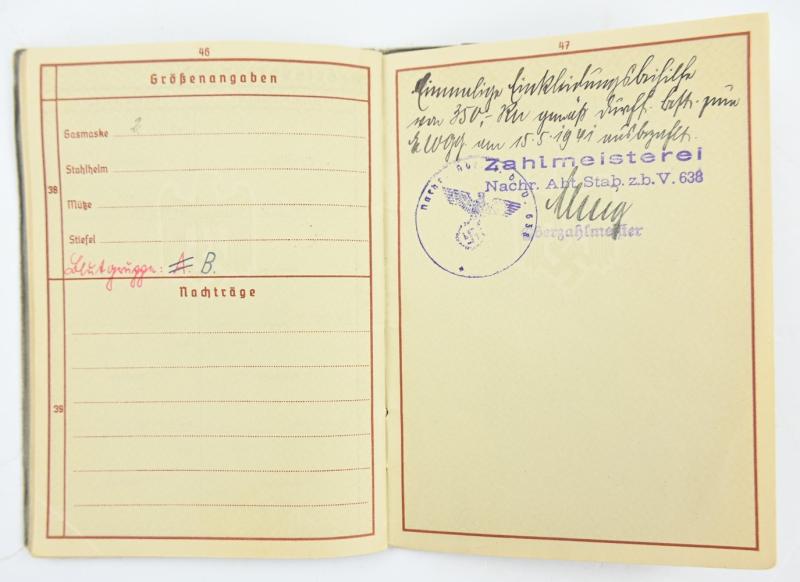 46
Größenangaben
Gasmaske 2
Stahlhelm
38
Mütze
Stiefel
Blutgruppe: A. B.
Nachträge
39
47
Einmalige Einkleidungsbeihilfe
von 350,- RM gemäß Durchf. Best. zum
EWGG am 15.5.1941 ausbezahlt.
Zahlmeisterei
Nachr. Abt. Stab. z.b.V. 638
Oberzahlmeister